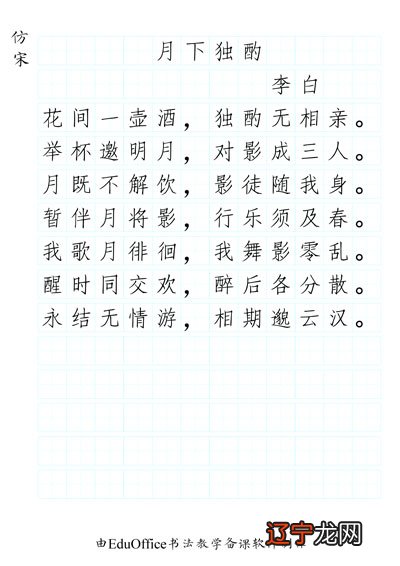 仿宋
月下独酌
李白
花间一壶酒，独酌无相亲。
举杯邀明月，对影成三人。
月既不解饮，影徒随我身。
暂伴月将影，行乐须及春。
我歌月徘徊，我舞影零乱。
醒时同交欢，醉后各分散。
永结无情游，相期邈云汉。
由EduOffice书法教学备课软件
辽宁龙网